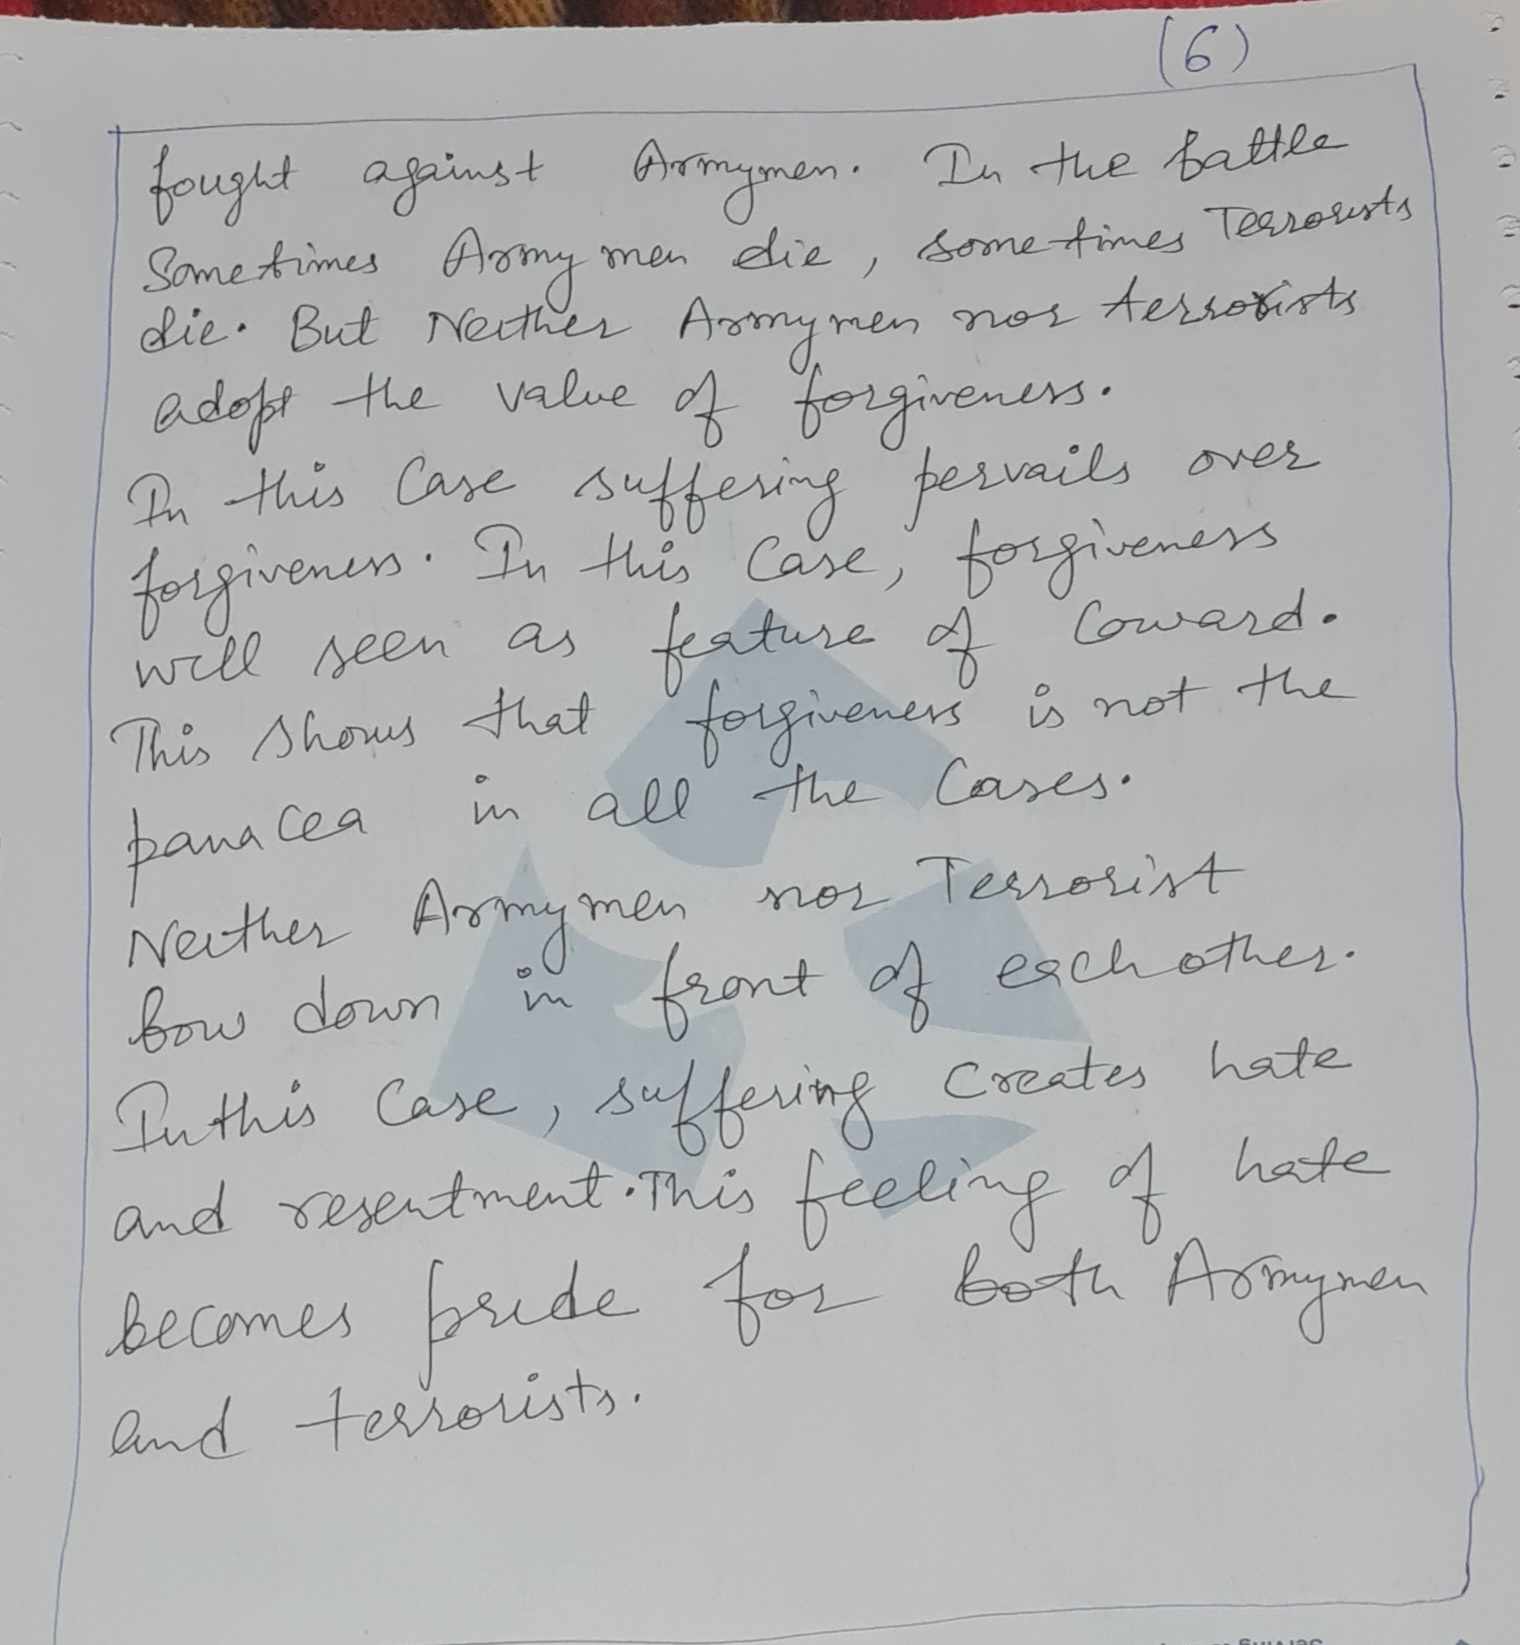 (6)
fought against Armymen. In the battle
Sometimes Armymen die, sometimes Terrorists
die. But Neither Armymen nor terrorists
adopt the value of forgiveness.
In this Case suffering pervails over
forgiveness. In this Case, forgiveness
will seen as feature of Coward.
This shows that forgiveness is not the
panacea in all the Cases.
Neither Armymen nor Terrorist
bow down in front of each other.
In this Case, suffering Creates hate
and resentment. This feeling of hate
becomes pride for both Armymen
and terrorists.